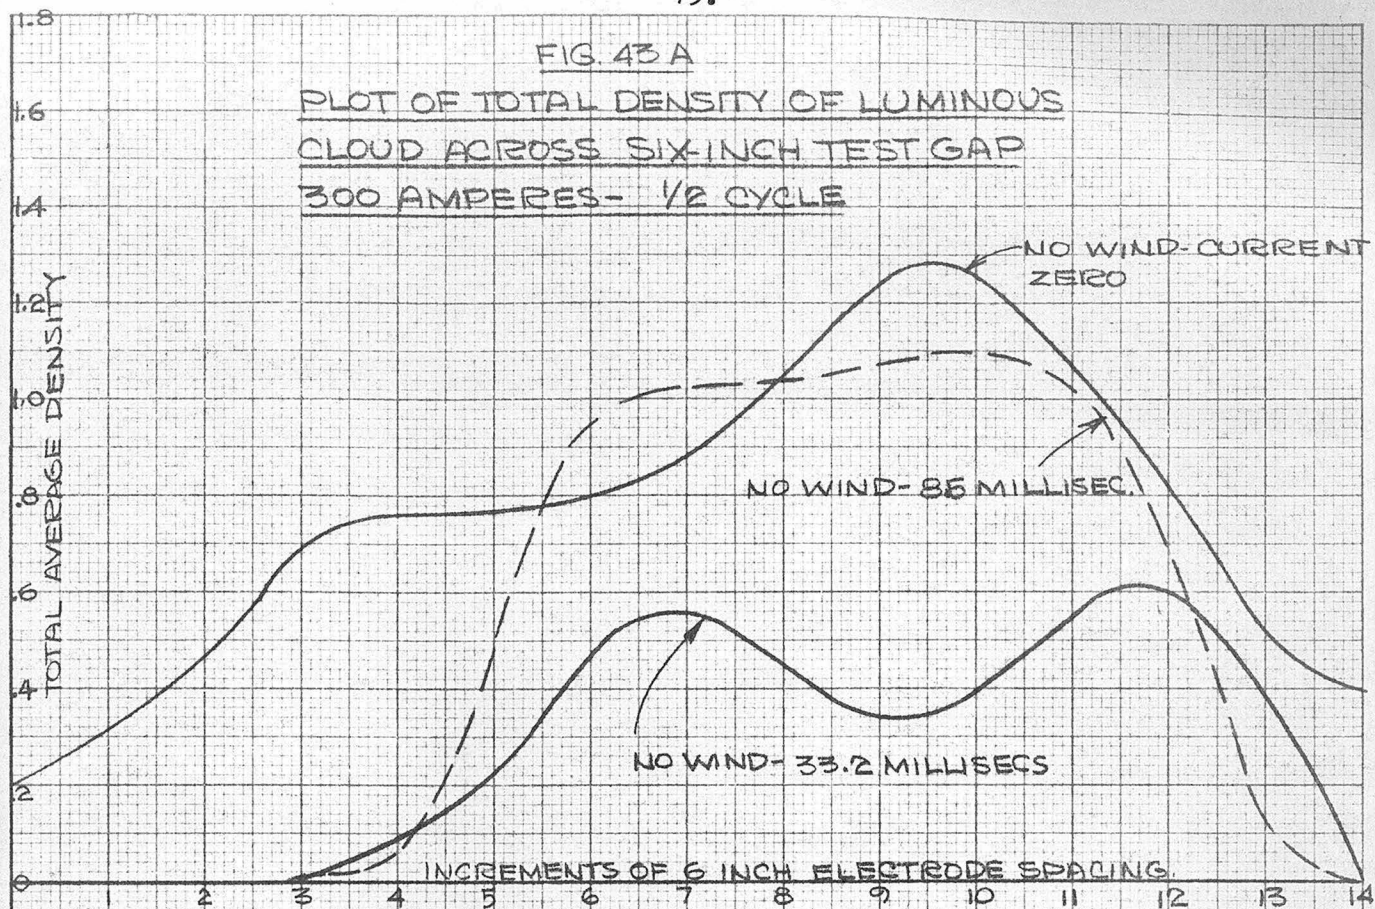 FIG. 43 A
PLOT OF TOTAL DENSITY OF LUMINOUS
CLOUD ACROSS SIX-INCH TEST GAP
300 AMPERES- 1/2 CYCLE
NO WIND-CURRENT
ZERO
NO WIND-85 MILLISEC.
NO WIND-33.2 MILLISECS
TOTAL AVERAGE DENSITY
1.8
1.6
1.4
1.2
1.0
.8
.6
.4
.2
0
INCREMENTS OF 6 INCH ELECTRODE SPACING
1 2 3 4 5 6 7 8 9 10 11 12 13 14